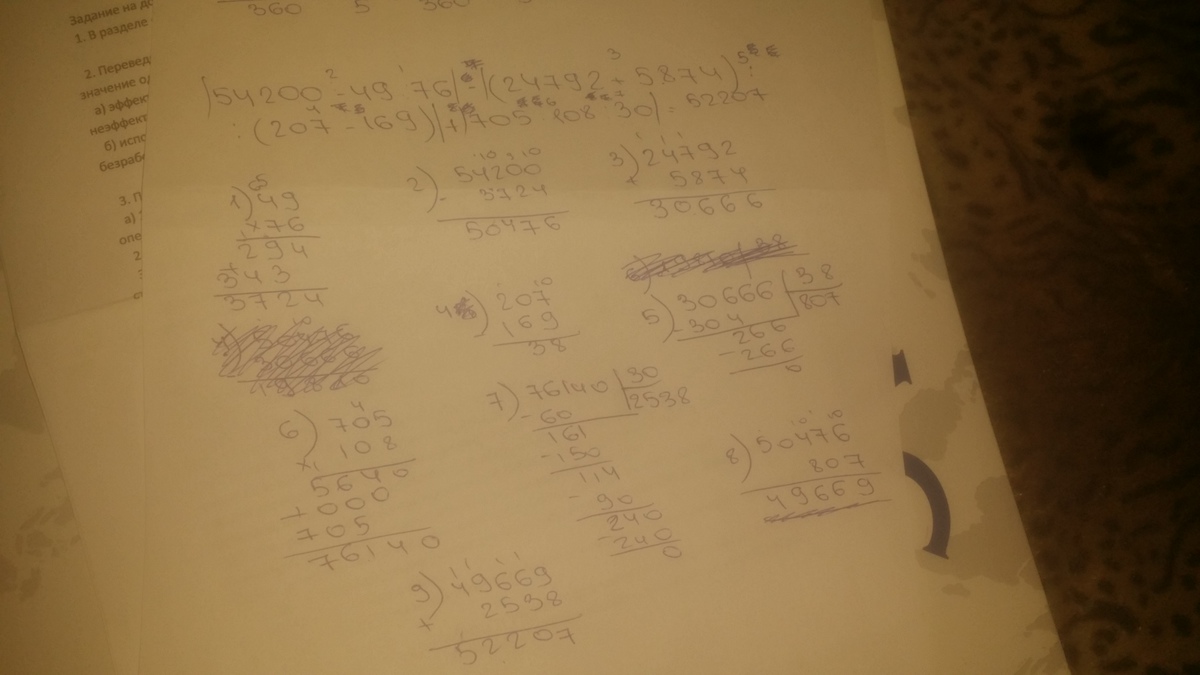 360 5 360
Задание на до
1. В разделе
2. Перевед
значение од
а) эффект
неэффект
б) испо
безрабо
3. П
а)
опе
2
(54200 - 49 · 76) - (24792 + 5874) :
: (207 - 169) + 705 · 108 : 30 = 52207
1) 49
× 76
294
+ 343
3724
2) 54200
- 3724
50476
3) 24792
+ 5874
30666
4) 207
- 169
38
5) 30666 | 38
- 304 | 807
266
- 266
0
6) 705
× 108
5640
+ 000
705
76140
7) 76140 | 30
- 60 | 2538
161
- 150
114
- 90
240
- 240
0
8) 50476
807
49669
9) 49669
+ 2538
52207